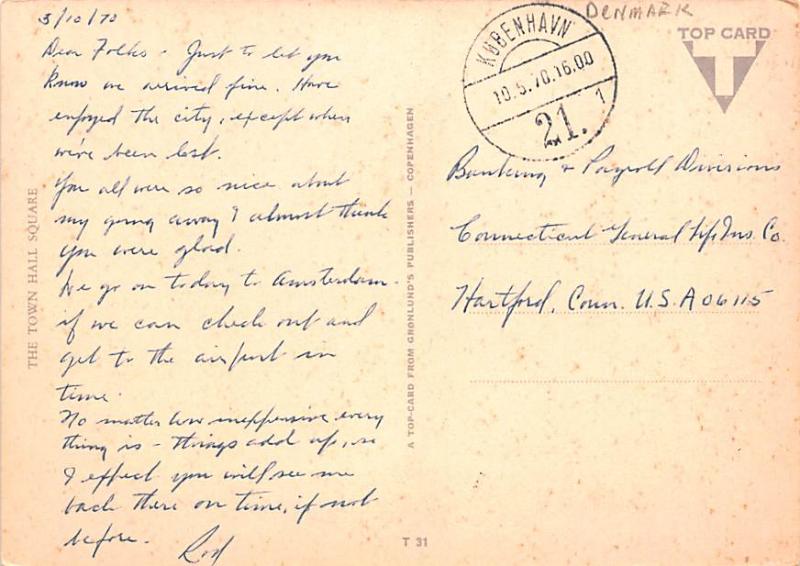 5/10/70
Dear Folks - Just to let you
know we arrived fine. Have
enjoyed the city, except when
we've been lost.
You all were so nice about
my going away I almost think
you were glad.
We go on today to Amsterdam -
if we can check out and
get to the airport in
time.
No matter how inexpensive every
thing is - things add up, so
I expect you will see me
back there on time, if not
before.
Rod
THE TOWN HALL SQUARE
A TOP-CARD FROM GRØNLUND'S PUBLISHERS — COPENHAGEN
T 31
DENMARK
KØBENHAVN
10.5.70.16.00
21. 1
TOP CARD
T
Banking & Payroll Divisions
Connecticut General Life Ins. Co.
Hartford, Conn. U.S.A 06115